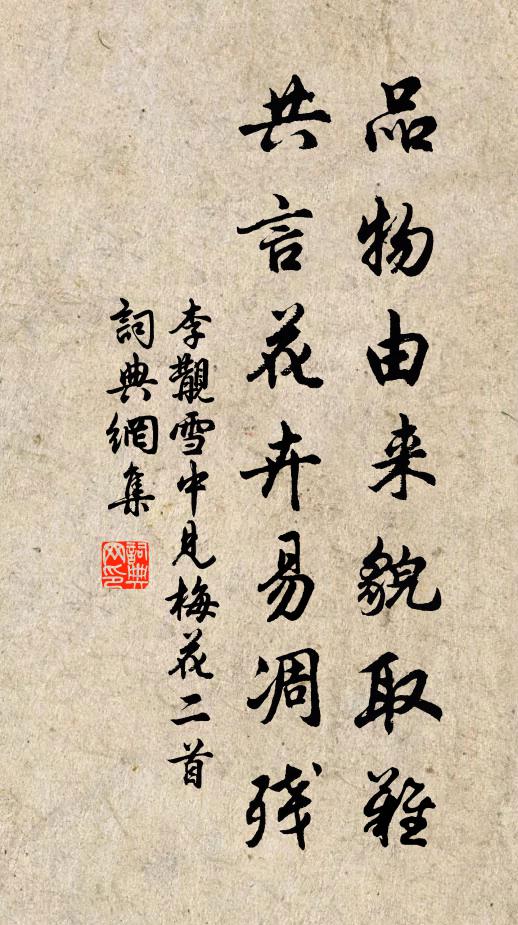 品物由来貌取難
共言花卉易凋残
李覯雪中見梅花二首
詞典網集
詞典網印